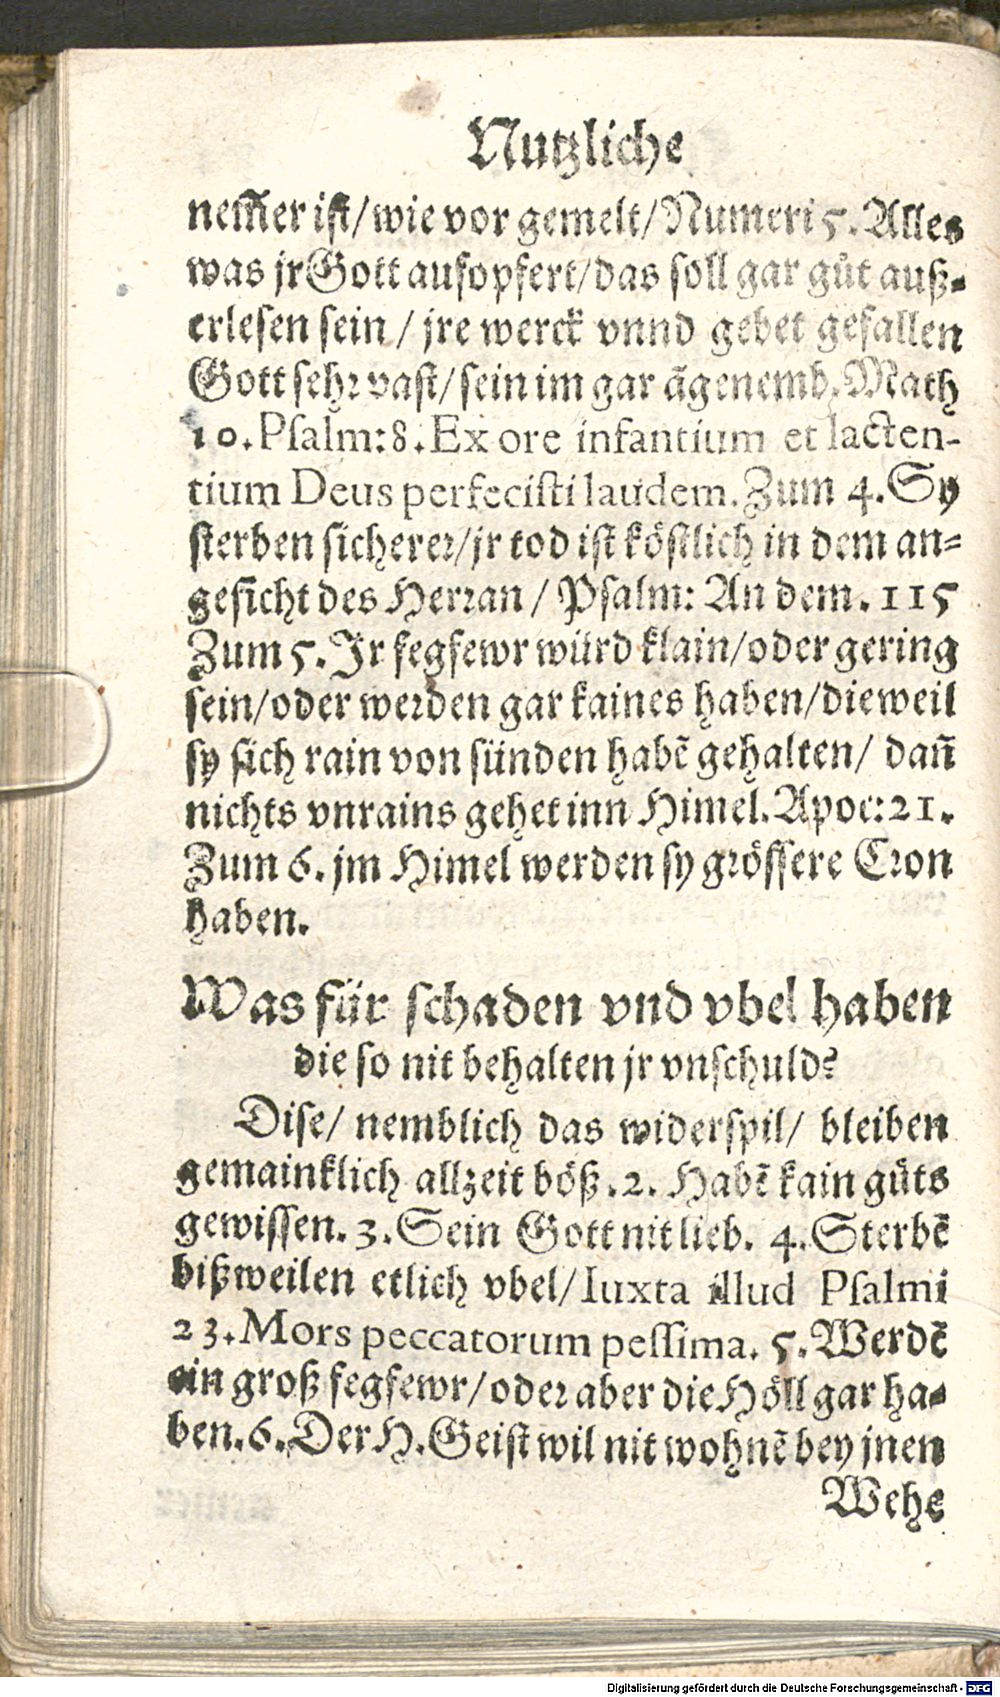 Nutzliche
nem̃er ist/wie vor gemelt/Numeri 5. Alles
was jr Gott aufopfert/das soll gar gůt auß-
erlesen sein / jre werck vnnd gebet gefallen
Gott sehr vast/sein im gar ãgenemb. Math
10. Psalm: 8. Ex ore infantium et lacten-
tium Deus perfecisti laudem. Zum 4. Sy
sterben sicherer/jr tod ist köstlich in dem an-
gesicht des Herran / Psalm: An dem. 115
Zum 5. Jr fegfewr würd klain/oder gering
sein/oder werden gar kaines haben/dieweil
sy sich rain von sünden habẽ gehalten/ dañ
nichts vnrains gehet inn Himel. Apoc: 21.
Zum 6. jm Himel werden sy grössere Cron
haben.
Was für schaden vnd vbel haben
die so nit behalten jr vnschuld?
Dise/ nemblich das widerspil/ bleiben
gemainklich allzeit böß. 2. Habẽ kain gůts
gewissen. 3. Sein Gott nit lieb. 4. Sterbẽ
bißweilen etlich vbel/ Iuxta illud Psalmi
23. Mors peccatorum pessima. 5. Werdẽ
ein groß fegfewr/oder aber die Höll gar ha-
ben. 6. Der H. Geist wil nit wohnẽ bey jnen
Wehe
Digitalisierung gefördert durch die Deutsche Forschungsgemeinschaft - DFG